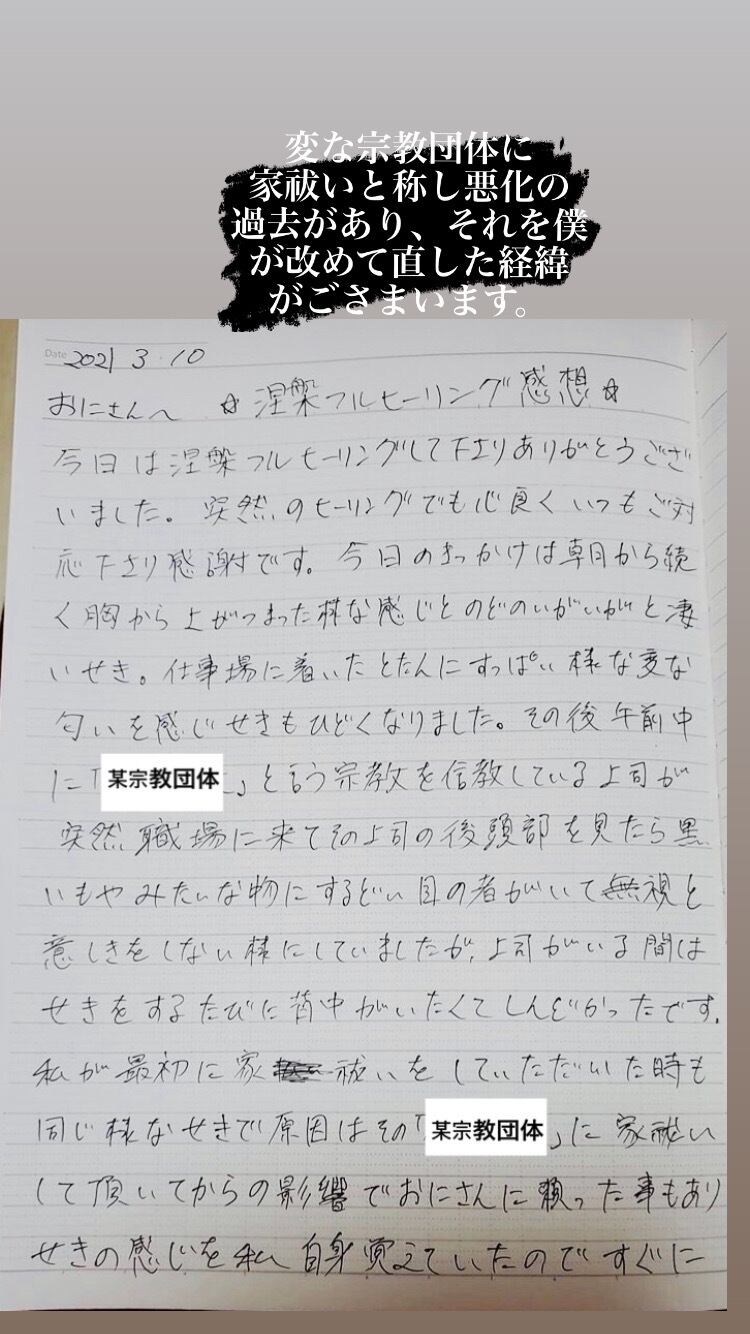 変な宗教団体に
家祓いと称し悪化の
過去があり、それを僕
が改めて直した経緯
がごさまいます。
Date 2021 3・10
おにさんへ ☆涅槃フルヒーリング感想☆
今日は涅槃フルヒーリングして下さりありがとうござ
いました。突然のヒーリングでも心良くいつもご対
応下さり感謝です。今日のきっかけは朝から続
く胸から上がつまった様な感じとのどのいがいがと凄
いせき。仕事場に着いたとたんにすっぱい様な変な
匂いを感じせきもひどくなりました。その後午前中
に「某宗教団体」と言う宗教を信教している上司が
突然職場に来てその上司の後頭部を見たら黒
いもやみたいな物にするどい目の者がいて無視と
意しきをしない様にしていましたが、上司がいる間は
せきをするたびに背中がいたくてしんどかったです.
私が最初に家祓いをしていただいた時も
同じ様なせきで原因はその「某宗教団体」に家祓い
して頂いてからの影響でおにさんに頼った事もあり
せきの感じを私自身覚えていたのですぐに